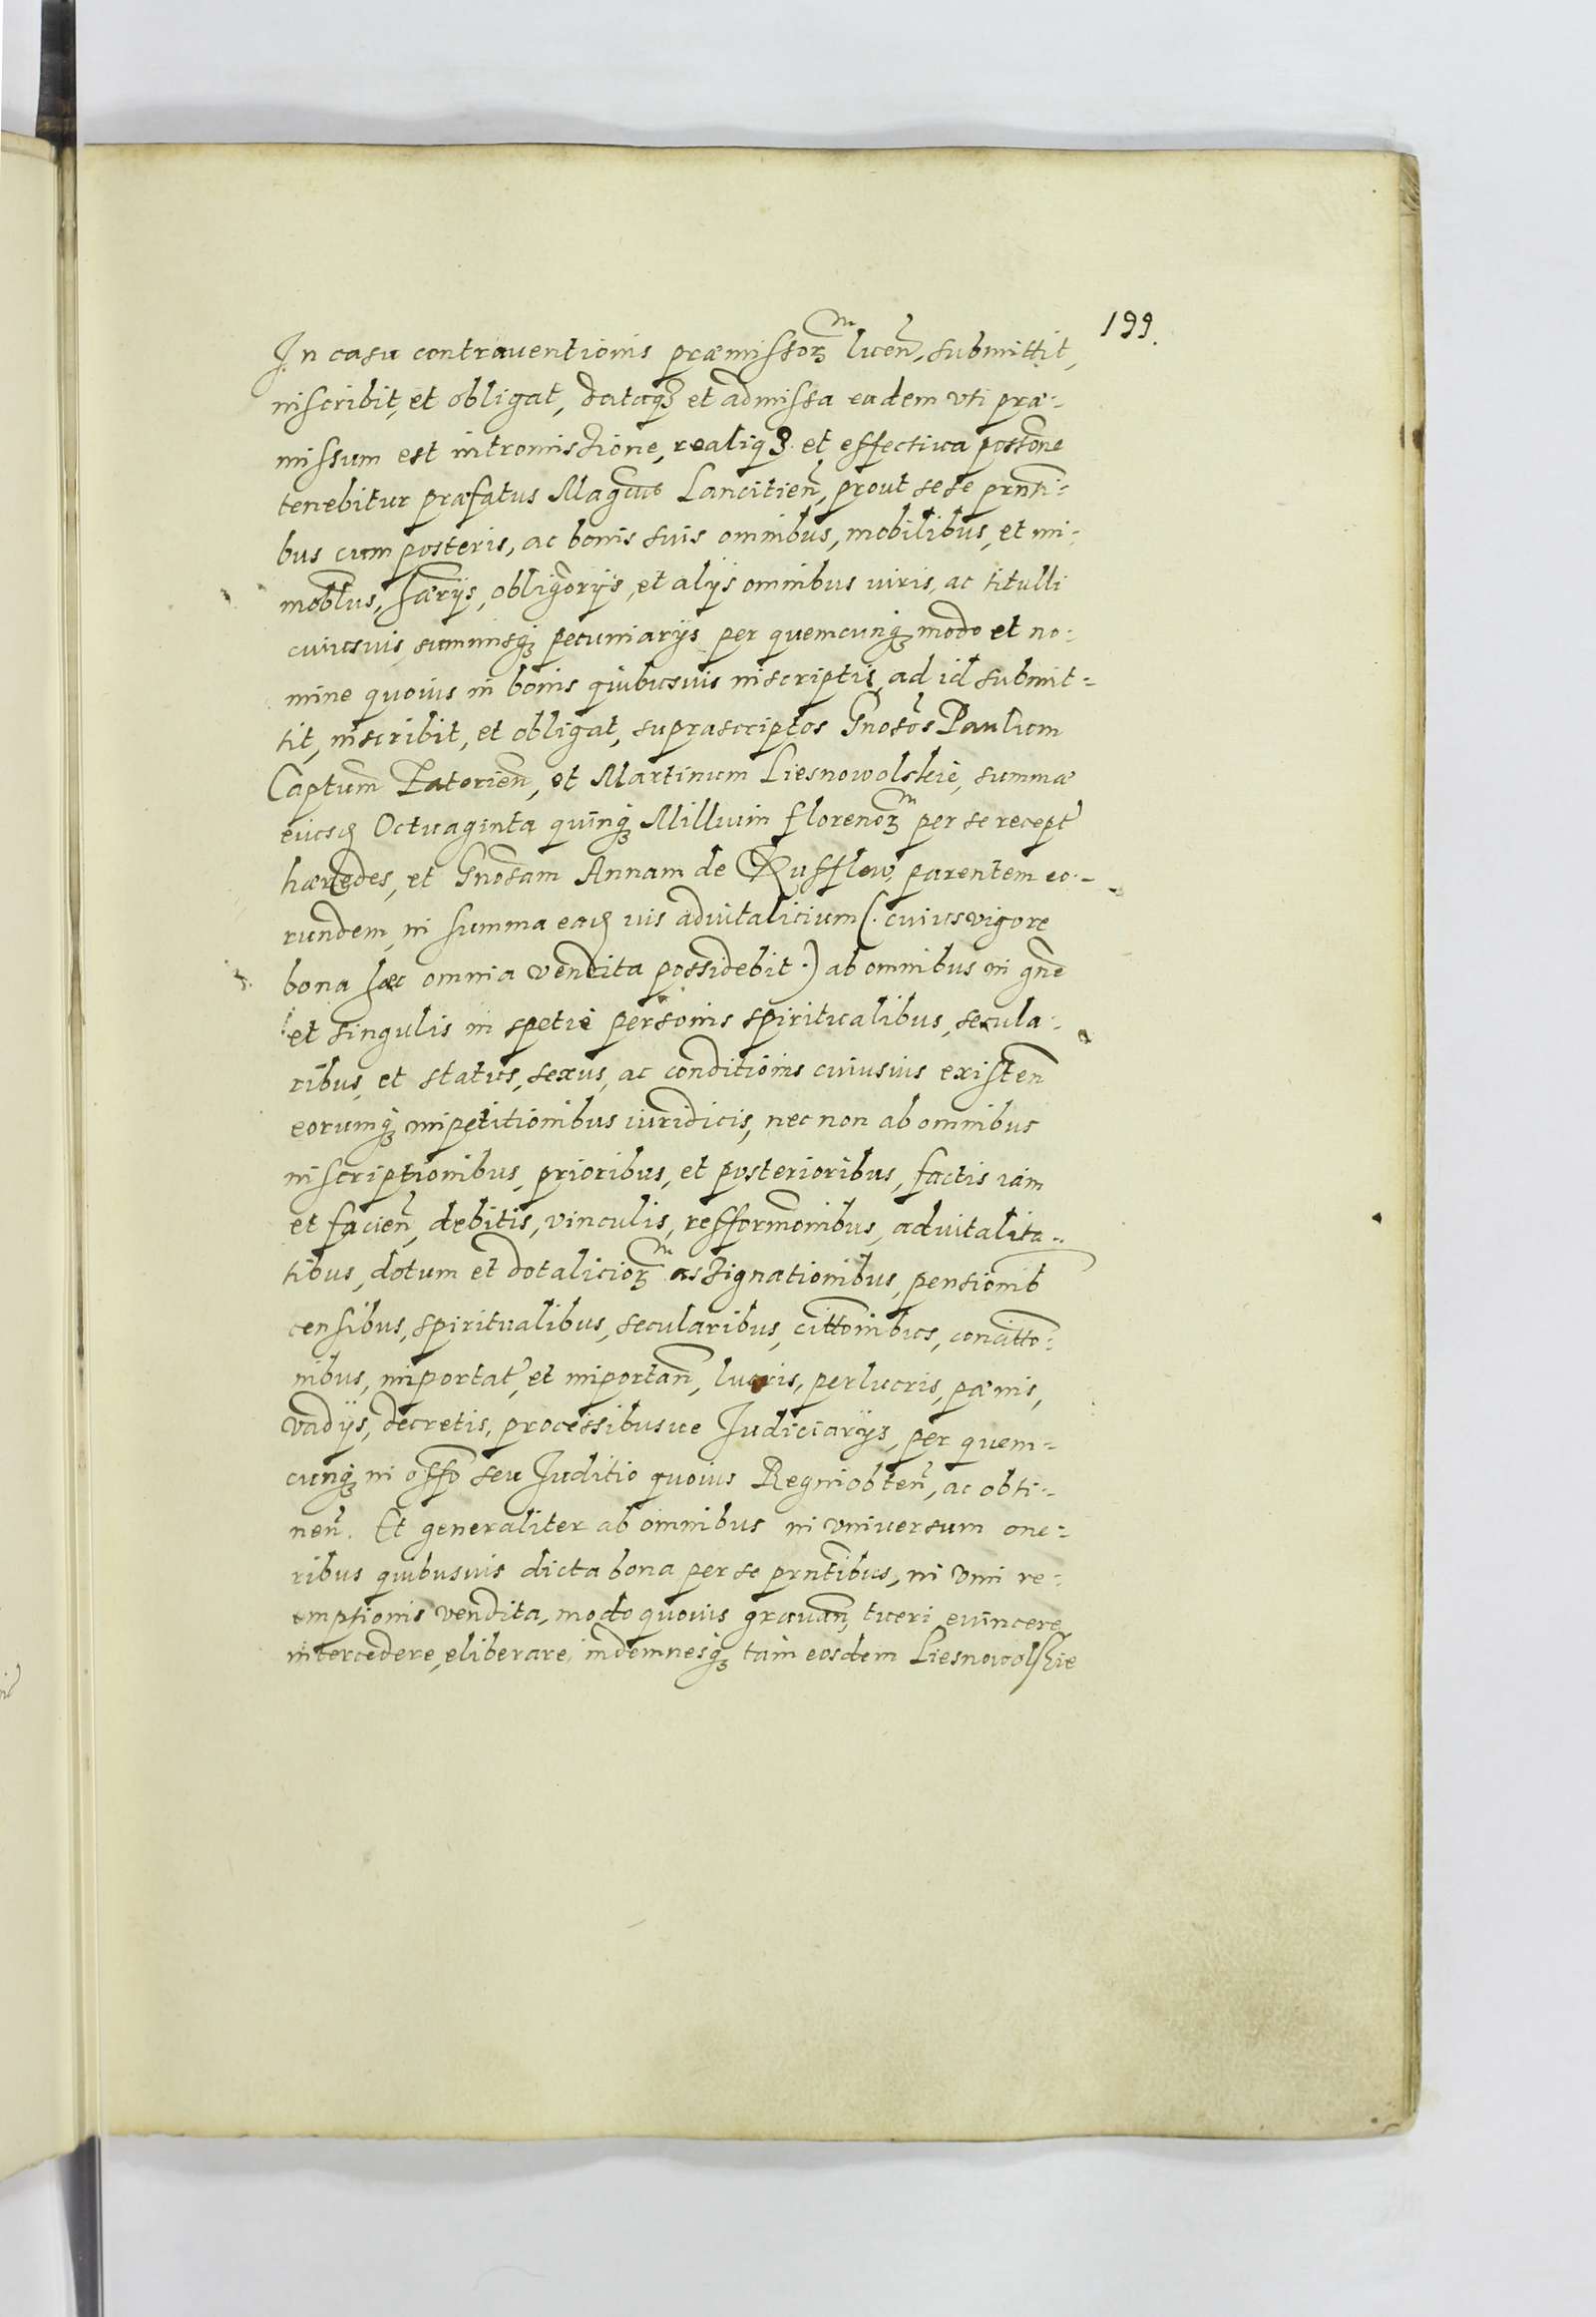 199.
In casu contrauentionis præmissorꝫ lucen̄, submittit,
inscribit, et obligat, dataqꝫ et admissa eadem vti præ:
missum est intromissione, realiqꝫ et effectiua possōne
tenebitur præfatus Magcus Lancitien̄, prout sese prnti:
bus cum posteris, ac bonis suis omnibus, mobilibus, et im:
moblus, hærijs, obligorijs, et alijs omnibus iuris, ac titulli
cuiusuis, summisqꝫ pecuniarijs per quemcunqꝫ modo et no:
mine quouis in bonis quibusuis inscriptis, ad id submit=
tit, inscribit, et obligat, suprascriptos Gnosōs Paulum
Captum Zatorien̄, et Martinum Liesnowolskie, summæ
eiusdꝫ Octuaginta quinqꝫ Millium florenorꝫ per se recept
hæredes, et Gnosam Annam de Kufflew, parentem eo-
rundem, in summa eadꝫ ius aduitalicium (. cuius vigore
bona hæc omnia vendita possidebit .) ab omnibus in gne
et singulis in spetie personis spiritualibus, secula:
ribus, et status, sexus, ac conditionis cuiusuis existen̄
eorumqꝫ impetitionibus iuridicis, nec non ab omnibus
inscriptionibus, prioribus, et posterioribus, factis iam
et facien̄, debitis, vinculis, refformōnibus, aduitalita:
tibus, dotum et dotaliciorꝫ assignationibus, pensionib
censibus, spiritualibus, secularibus, cittōnibus, concittō:
nibus, importat, et importan̄, lucris, perlucris, pænis,
vadijs, decretis, processibusue Judiciarijs, per quem=
cunqꝫ in offō seu Juditio quouis Regni obten̄, ac obti:
nen̄. Et generaliter ab omnibus in vniuersum one:
ribus quibusuis dicta bona per se prntibus, in vim re:
emptionis vendita, modo quouis grauan̄, tueri, euincere,
intercedere, eliberare, indemnesqꝫ tam eosdem Liesnowolskie